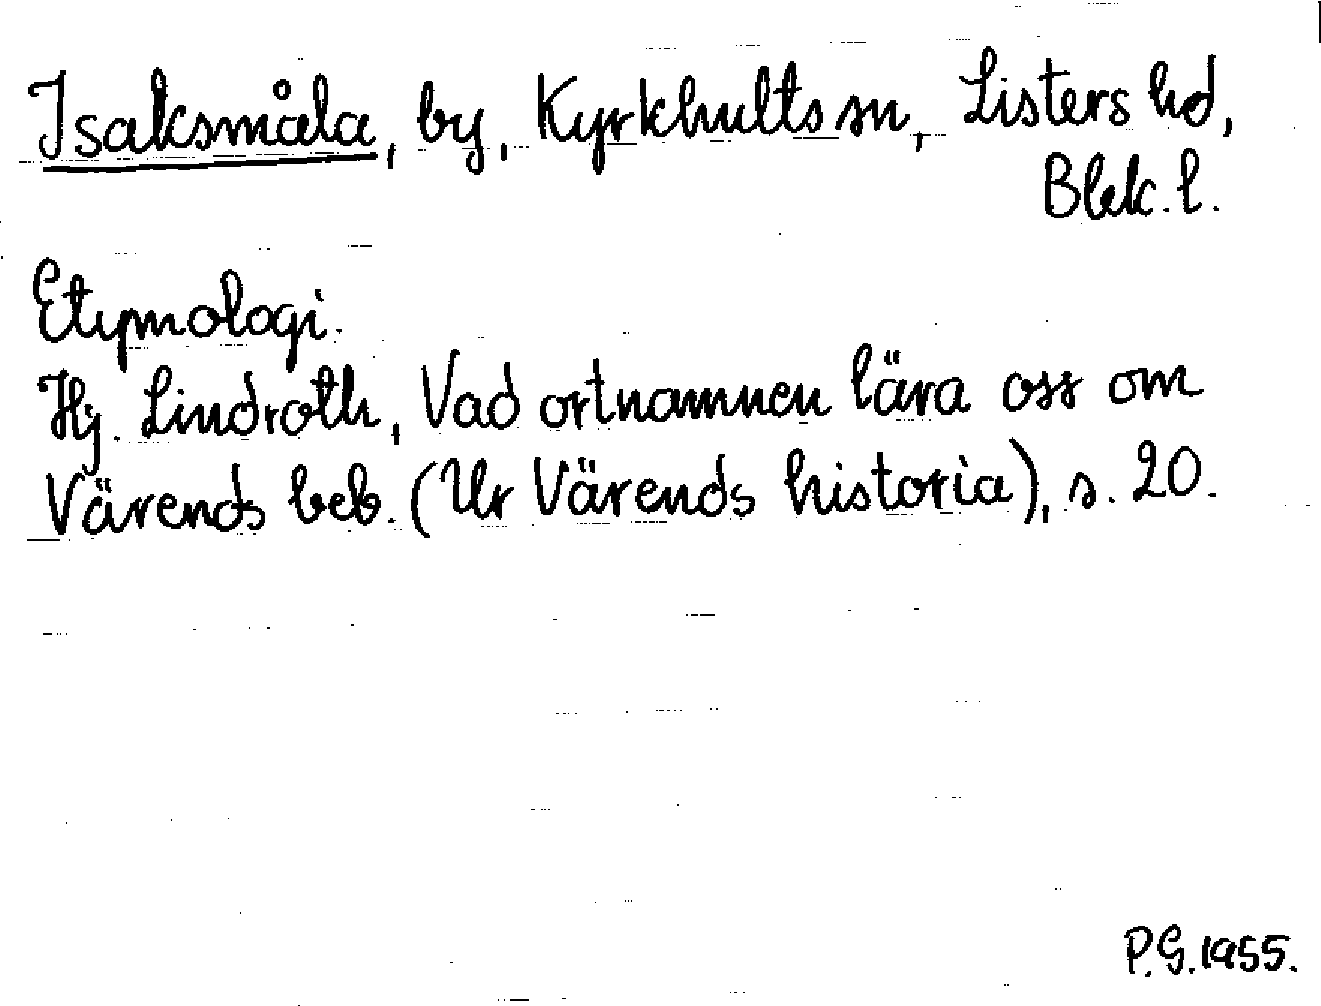 Isaksmåla, by, Kyrkhults sn, Listers hd,
Blek. l.
Etymologi.
Hj. Lindroth, Vad ortnamnen lära oss om
Värends beb. (Ur Värends historia), s. 20.
P.G. 1955.